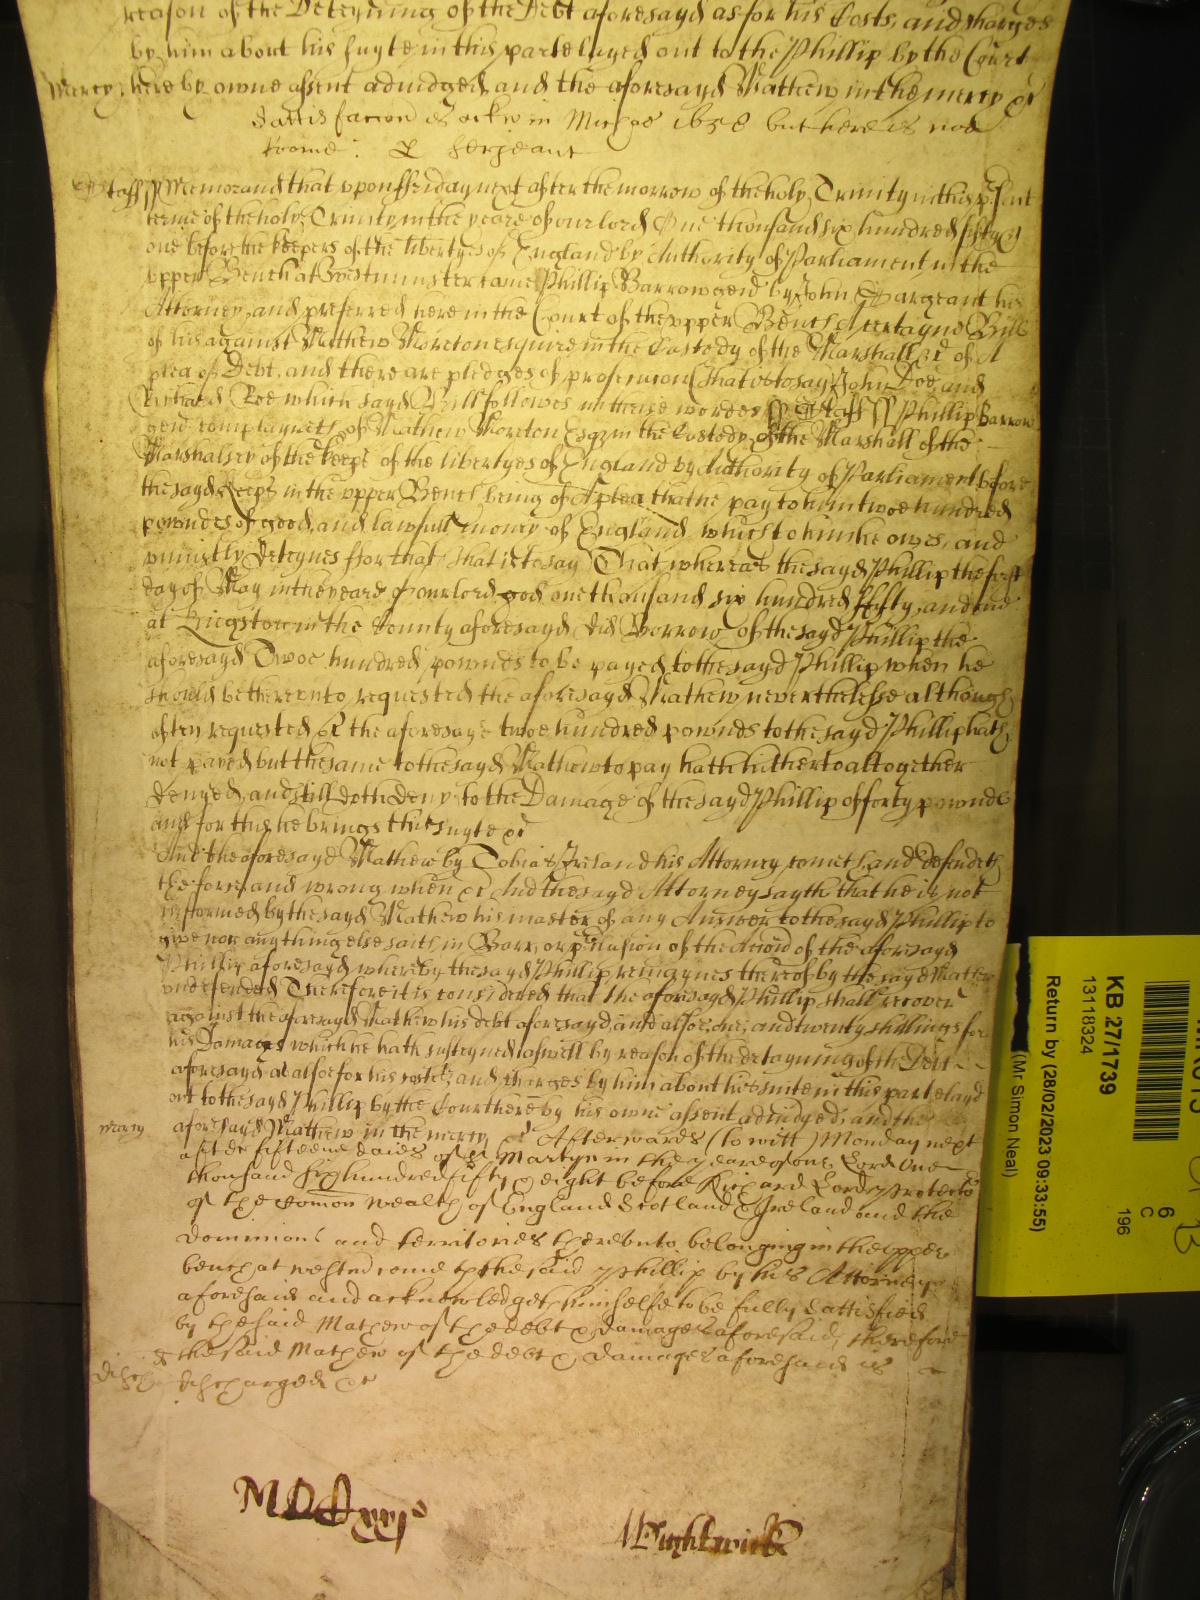 reason of the Deteyning of the Debt aforesayd as for his Costs, and charges
by him about his suyte in this parte layed out to the Phillip by the Court
Mercy. here by owne assent adiudged, and the aforesayd Mathew in the mercy &c
Sattisfaccion is ackn in Mich 1658 but here is noe
roome: & Serjeant
Staff ss Memorand that upon ffriday next after the morrow of the holy Trinity in this psent
terme of the holy Trinity in the yeare of our lord One thousand six hundred fifty
one before the keepers of the libertyes of England by Authority of Parliament in the
upper Bench at Westminster came Phillip Barrow gent by John Sargeant his
Attorney, and preferred here in the Court of the upper Bench A certayne Bill
of his against Mathew Moreton esquire in the Custody of the Marshall &c of A
plea of Debt, and there are pledges of prosecucion (that is to say) John Doe, and
Richard Roe which sayd Bill followes in theise wordes ss Staff ss Phillip Barrow
gent complaynes of Mathew Moreton Esqr in the Custody of the Marshall of the
Marshalsey of the keeps of the libertyes of England by Authority of Parliament before
the sayd keeps in the upper Bench being of A plea that he pay to him twoe hundred
powndes of good, and lawfull money of England which to him he owes, and
uniustly deteynes ffor that that is to say That whereas the sayd Phillip the first
day of May in the yeare of our lord god one thousand six hundred ffifty, and one
at in the County aforesayd did Borrow of the sayd Phillip the
aforesayd Twoe hundred pownds to be payed to the sayd Phillip when he
should be thereunto requested the aforesayd Mathew neverthelesse although
often requested &c the aforesayd twoe hundred pownds to the sayd Phillip hath
not payed but the same to the sayd Mathew to pay hath hitherto altogether
denyed, and still doth deny to the Damage of the sayd Phillip of forty pownds
and for this he brings this suyte &c
And the aforesayd Mathew by Tobias Ireland his Attorney cometh, and defendeth
the force, and wrong when &c And the sayd Attorney sayth that he is not
informed by the sayd Mathew his master of any Answer to the sayd Phillip to
give nor any thing else saith in Barr, or of the Accion of the aforesayd
Phillip aforesayd whereby the sayd Phillip remaynes thereof by the sayd Mathew
undefended Therefore it is considered that the aforesayd Phillip shall recover
against the aforesayd Mathew his debt aforesayd, and alsoe one, and twenty shillings for
his Damages which he hath susteyned aswell by reason of the detayning of the Debt
aforesayd as alsoe for his costes, and charges by him about his suite in this parte layd
out to the sayd Phillip by the Court here by his owne assent adiudged, and the
mercy aforesayd Matthew in the mercy &c Afterwards (to witt) Monday next
after fifteene daies of St Martyn in the yeare of our Lord One
thousand six hundred fifty & eight before Richard Lord Protector
of the Comon wealth of England Scotland & Ireland and the
dominions and territories thereunto belonging in the upper
bench at westm come the said Phillip by his Attorney
aforesaid and acknowledgeth himselfe to be fully sattisfied
by the said Mathew of the debt & damages aforesaid, therefore
the said Mathew of the debt & damages aforesaid is
disch discharged &c
KB 27/1739
13118324
Return by (28/02/2023 09:33:55)
(Mr Simon Neal)
6
C
196